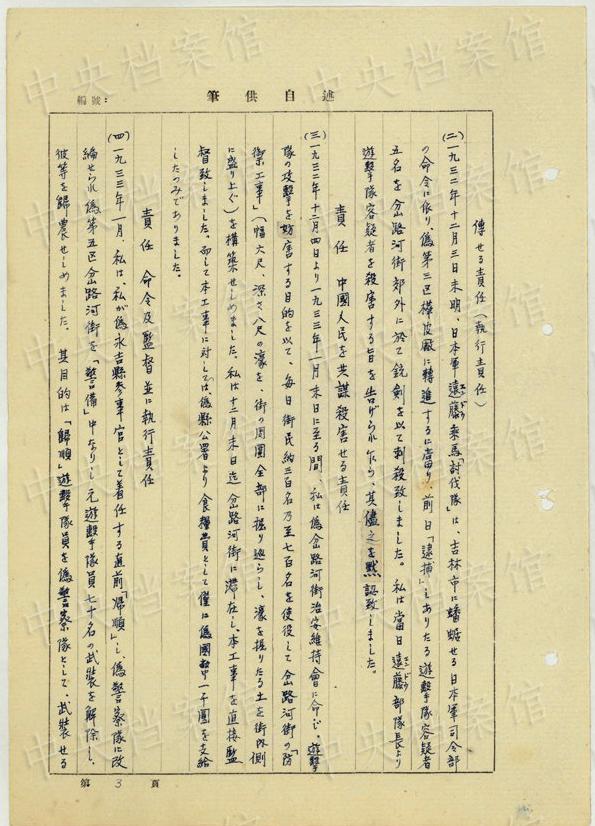 編號：
筆供自述
傳せる責任（執行責任）
(二)一九三二年十二月三日未明、日本軍遠藤エンドウ乘馬「討伐隊」は、吉林市に蟠踞せる日本軍司令部
の命令に依り、偽第三区樺皮廠に轉進するに當り、前日「逮捕」しありたる遊擊隊容疑者
五名を岔路河街郊外に於て銃劍を以て刺殺致しました。私は當日遠藤エンドウ部隊長より
遊擊隊容疑者を殺害する旨を告げられ乍ら、其儘之を默認致しました。
責任 中國人民を共謀殺害せる責任
(三)一九三二年十二月四日より一九三三年一月末日に至る間、私は偽岔路河街治安維持會に命じ、遊擊
隊の攻擊を妨害する目的を以て、每日街民約三百名乃至七百名を使役して岔路河街の「防
禦工事」（幅六尺、深さ八尺の濠を、街の周圍全部に掘り巡らし、濠を掘りたる土を街內側
に盛り上ぐ）を構築せしめました。私は十二月末日迄岔路河街に滯在し、本工事を直接監
督致しました。而して本工事に対しては、偽縣公署より食糧費として僅に偽國幣一千圓を支給
したのみでありました。
責任 命令及監督並に執行責任
(四)一九三三年一月、私は、私が偽永吉縣參事官として着任する直前「歸順」し、偽警察隊に改
編せられ偽第五区岔路河街を「警備」中なりし元遊擊隊員七十名の武裝を解除し、
彼等を歸農せしめました。其目的は「歸順」遊擊隊員を偽警察隊として、武裝せる
第 3 頁
中央档案馆